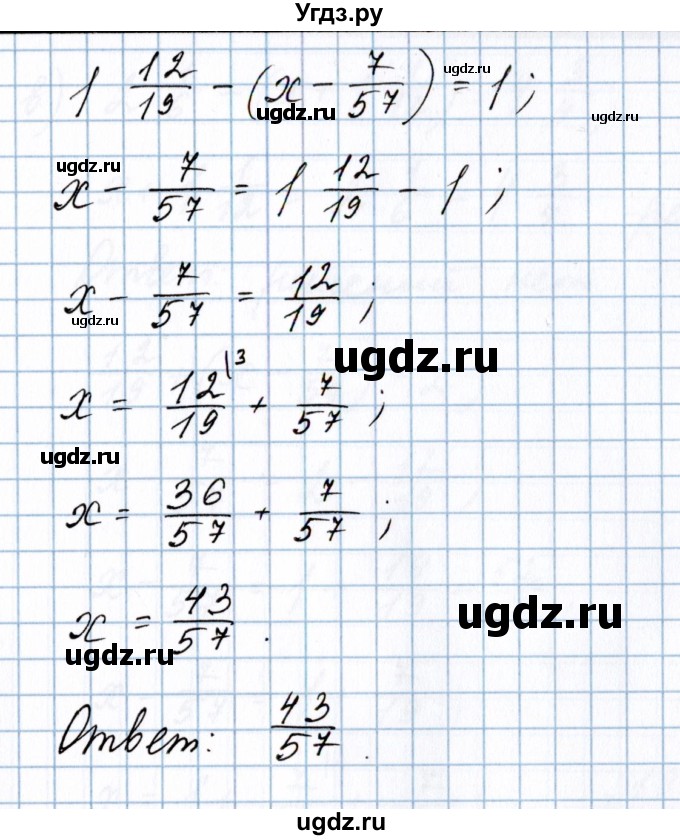 Угдз.ру
1 12/19 - (x - 7/57) = 1;
ugdz.ru
ugdz.ru
ugdz.ru
ugdz.ru
x - 7/57 = 1 12/19 - 1;
x - 7/57 = 12/19;
ugdz.ru
ugdz.ru
x = 12/19 \3 + 7/57;
ugdz.ru
x = 36/57 + 7/57;
x = 43/57.
ugdz.ru
ugdz.ru
Ответ: 43/57.
ugdz.ru